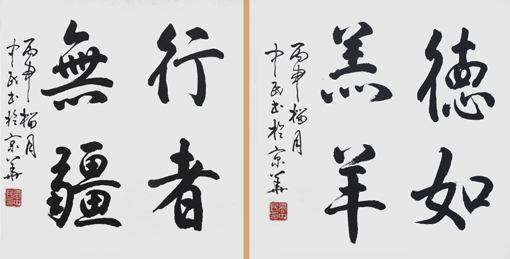 德如
羔羊
丙申榴月
中民书於京華
行者
無疆
丙申榴月
中民书於京華